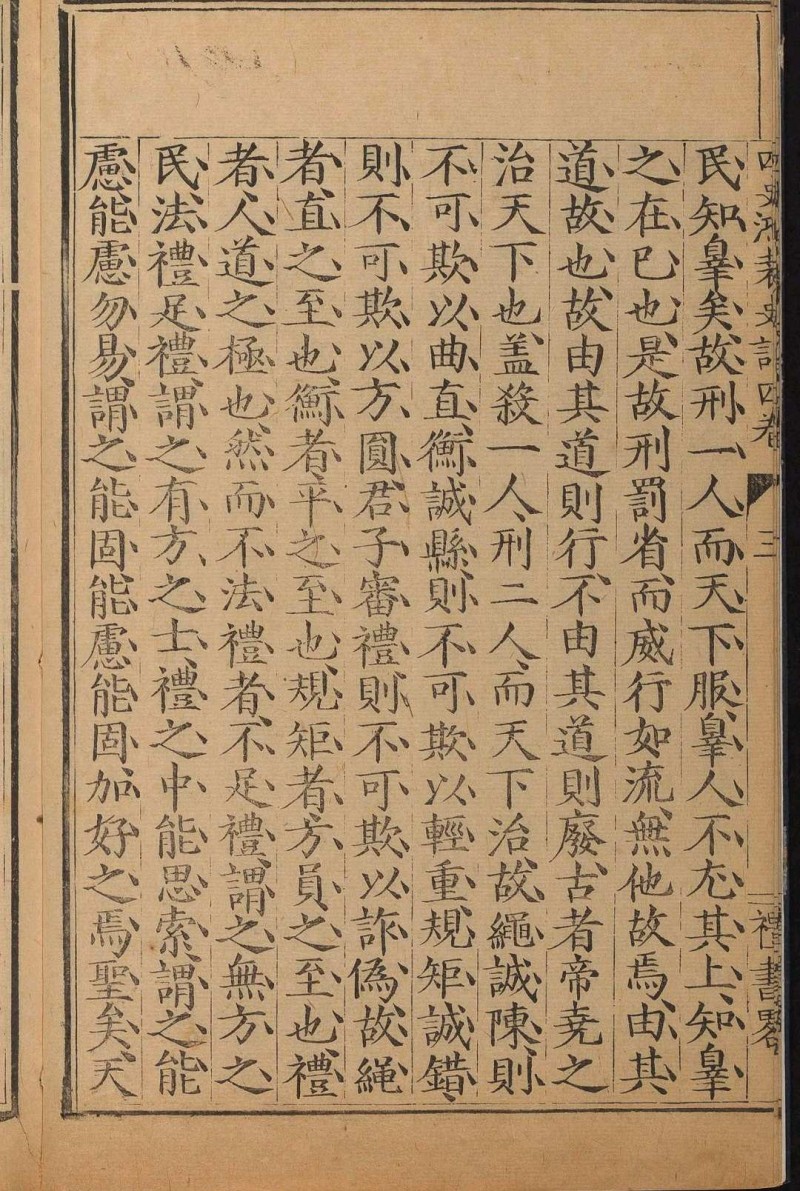 四史鴻裁史記四卷 三 禮書畧
民知辠矣故刑一人而天下服辠人不尤其上知辠
之在已也是故刑罰省而威行如流無他故焉由其
道故也故由其道則行不由其道則廢古者帝堯之
治天下也盖殺一人刑二人而天下治故繩誠陳則
不可欺以曲直衡誠縣則不可欺以輕重規矩誠錯
則不可欺以方圓君子審禮則不可欺以詐偽故繩
者直之至也衡者平之至也規矩者方員之至也禮
者人道之極也然而不法禮者不足禮謂之無方之
民法禮足禮謂之有方之士禮之中能思索謂之能
慮能慮勿易謂之能固能慮能固加好之焉聖矣天